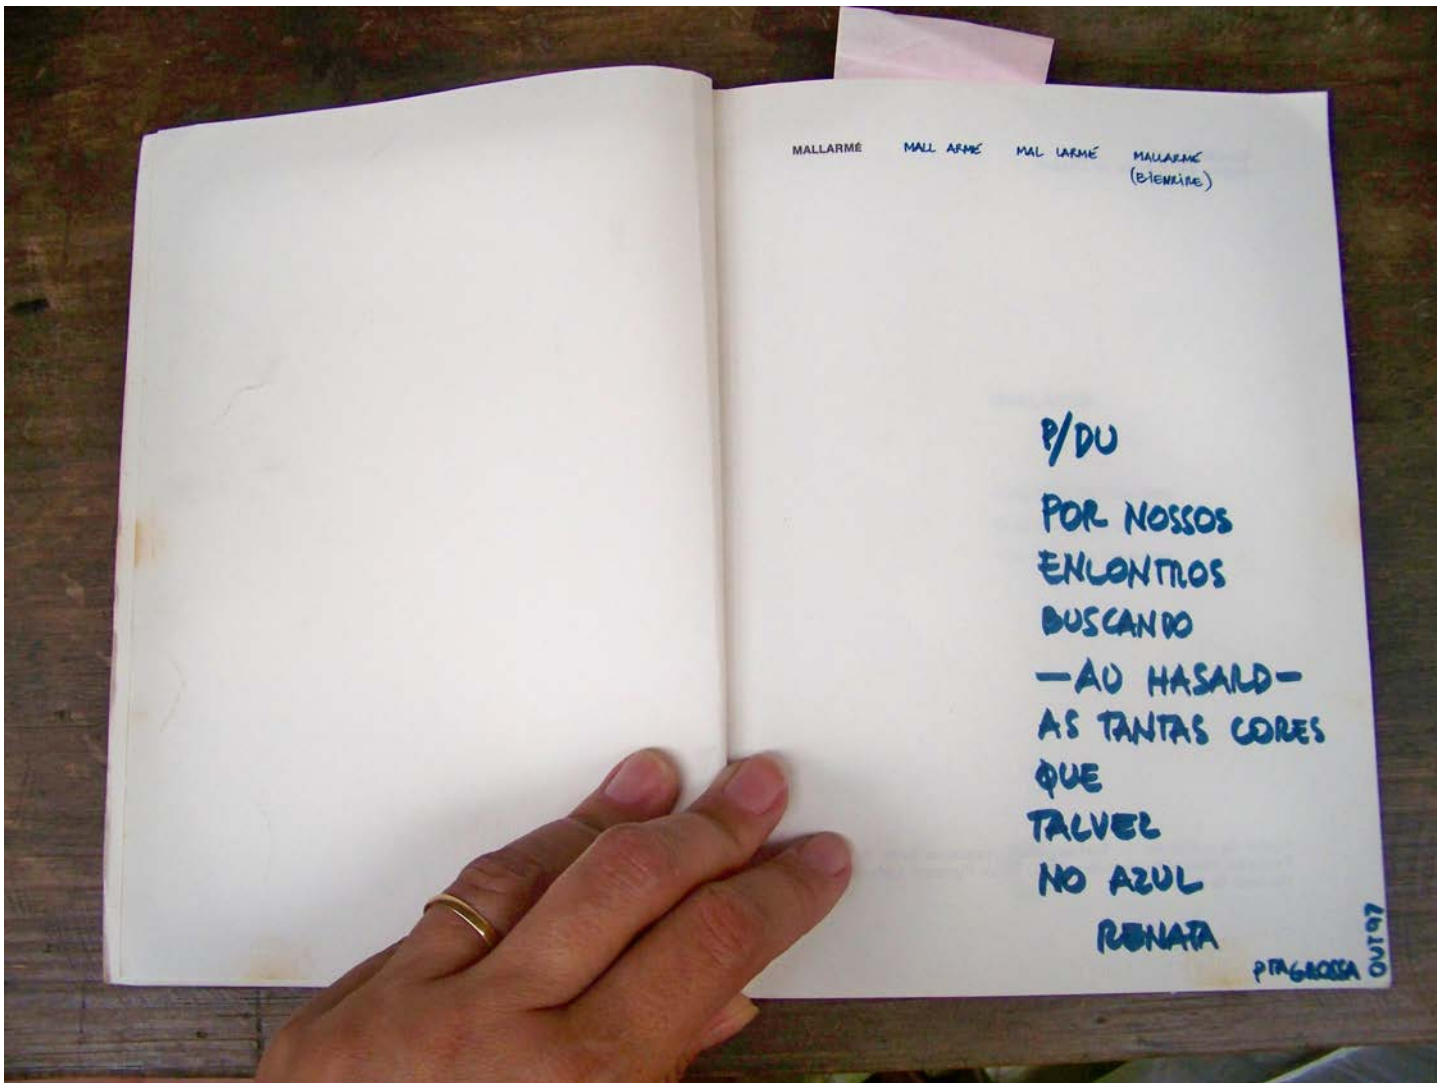 MALLARMÉ MALL ARMÉ MAL LARMÉ MALLARMÉ
(BIENRIRE)
P/DU
POR NOSSOS
ENCONTROS
BUSCANDO
—AU HASARD—
AS TANTAS CORES
QUE
TALVEZ
NO AZUL
RENATA
PTAGROSSA OUT97